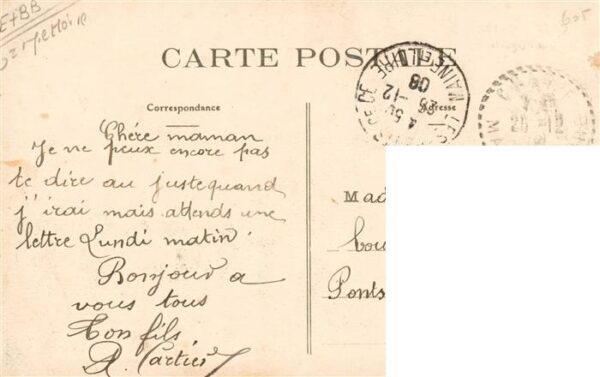 E+BB
CARTE POSTALE
Correspondance
Adresse
MAINE-ET-LOIRE
4 50
28 -12
08
Chère maman
Je ne peux encore pas
te dire au juste quand
j'irai mais attends une
lettre Lundi matin.
Bonjour a
vous tous
Ton fils
Mad
Ponts